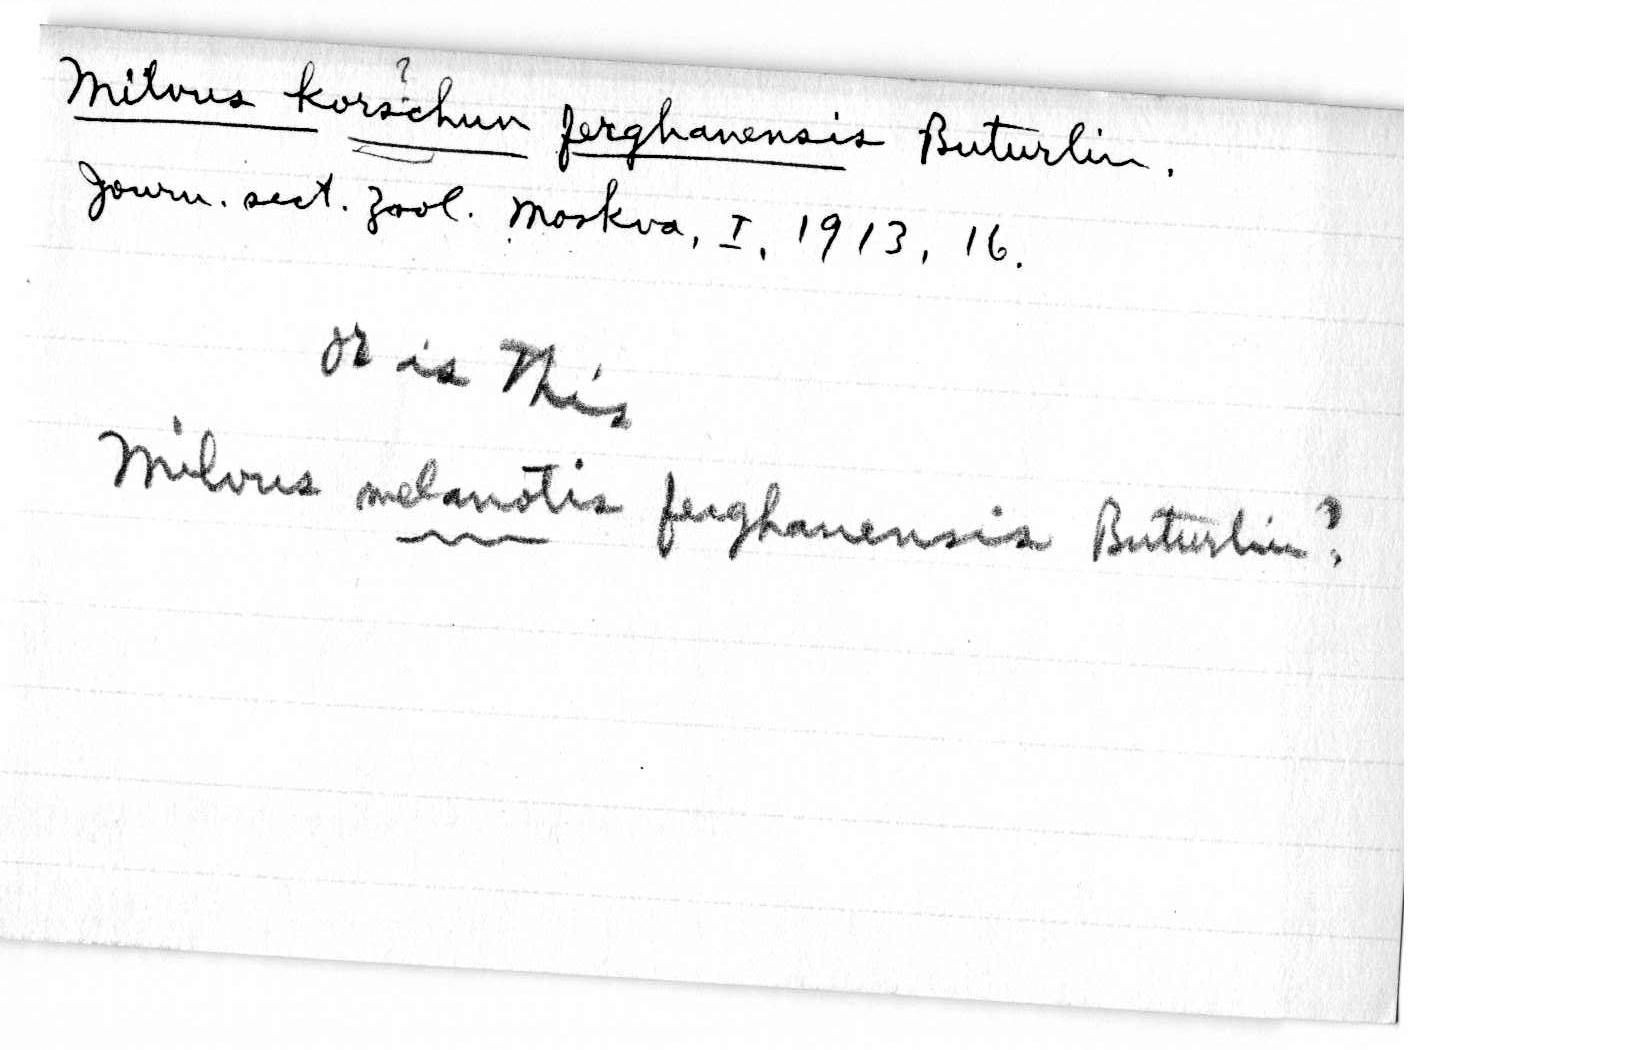 ?
Milvus korschun ferghanensis Buturlin.
Journ. sect. Zool. Moskva, I, 1913, 16.
or is this
Milvus melanotis ferghanensis Buturlin?